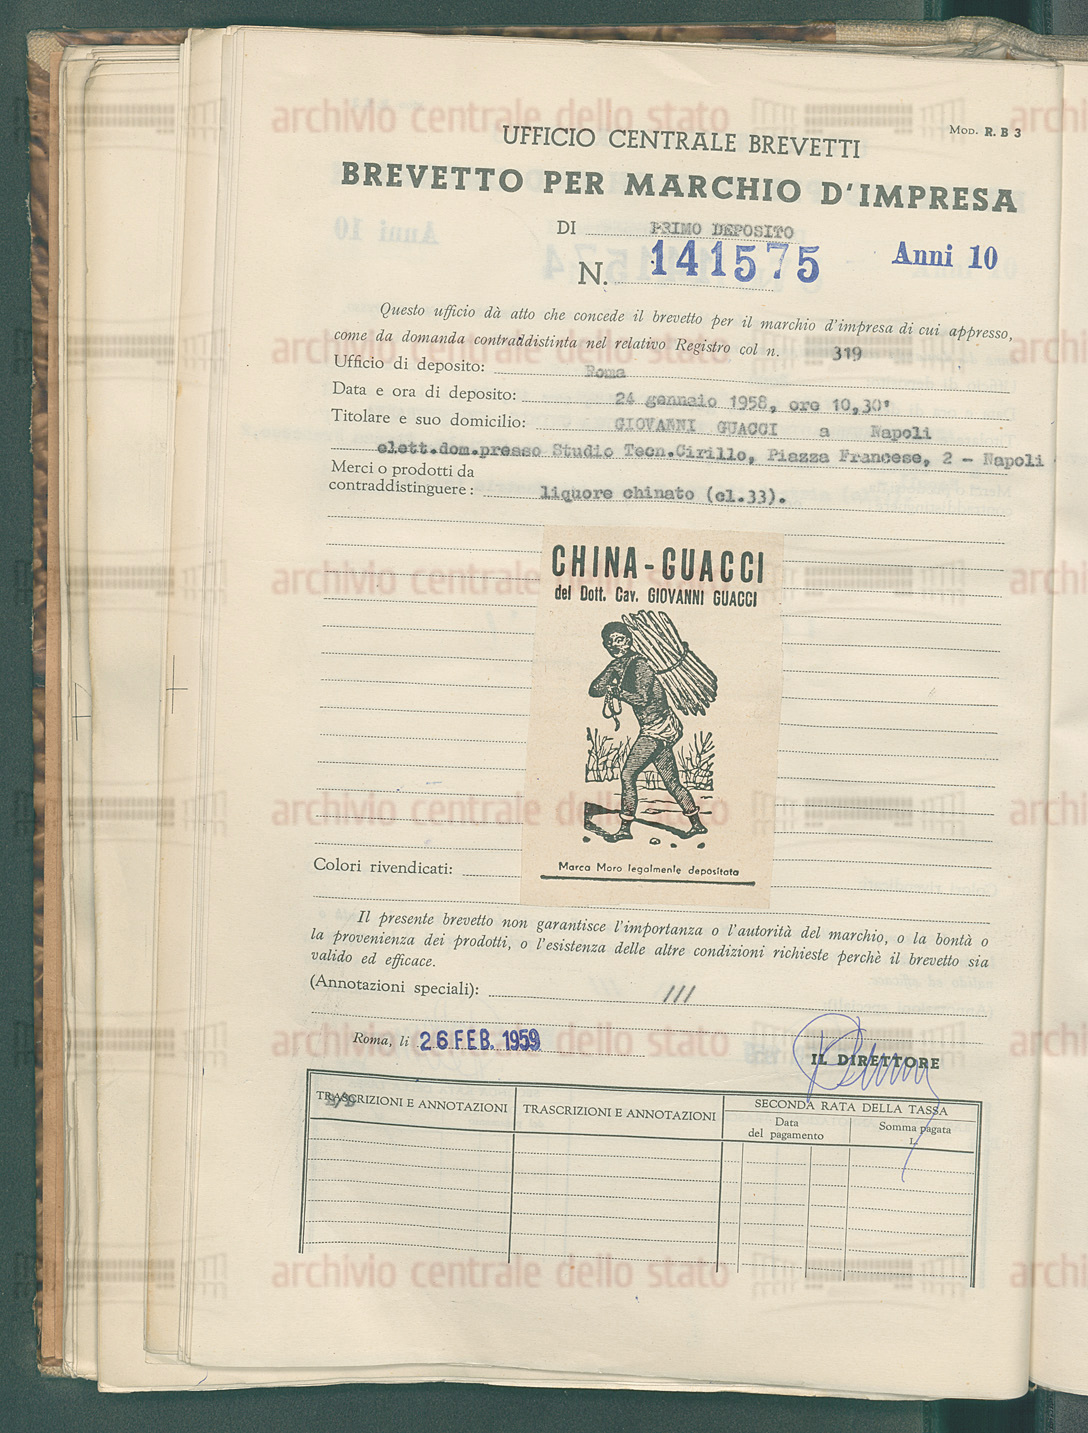 Mod. R. B 3
UFFICIO CENTRALE BREVETTI
BREVETTO PER MARCHIO D'IMPRESA
DI PRIMO DEPOSITO
N. 141575 Anni 10
Questo ufficio dà atto che concede il brevetto per il marchio d'impresa di cui appresso,
come da domanda contraddistinta nel relativo Registro col n. 319
Ufficio di deposito: Roma
Data e ora di deposito: 24 gennaio 1958, ore 10,30'
Titolare e suo domicilio: GIOVANNI GUACCI a Napoli
elett.dom.presso Studio Tecn.Cirillo, Piazza Francese, 2 - Napoli
Merci o prodotti da
contraddistinguere: liquore chinato (cl.33).
CHINA-GUACCI
del Dott. Cav. GIOVANNI GUACCI
Marca Moro legalmente depositata
Colori rivendicati:
Il presente brevetto non garantisce l'importanza o l'autorità del marchio, o la bontà o
la provenienza dei prodotti, o l'esistenza delle altre condizioni richieste perchè il brevetto sia
valido ed efficace.
(Annotazioni speciali): ///
Roma, lì 26 FEB. 1959
IL DIRETTORE
TRASCRIZIONI E ANNOTAZIONI
TRASCRIZIONI E ANNOTAZIONI
SECONDA RATA DELLA TASSA
Data
del pagamento
Somma pagata
L.
archivio centrale dello stato
archivio centrale dello stato
archivio centrale dello stato
archivio centrale dello stato
archivio centrale dello stato
archivio centrale dello stato